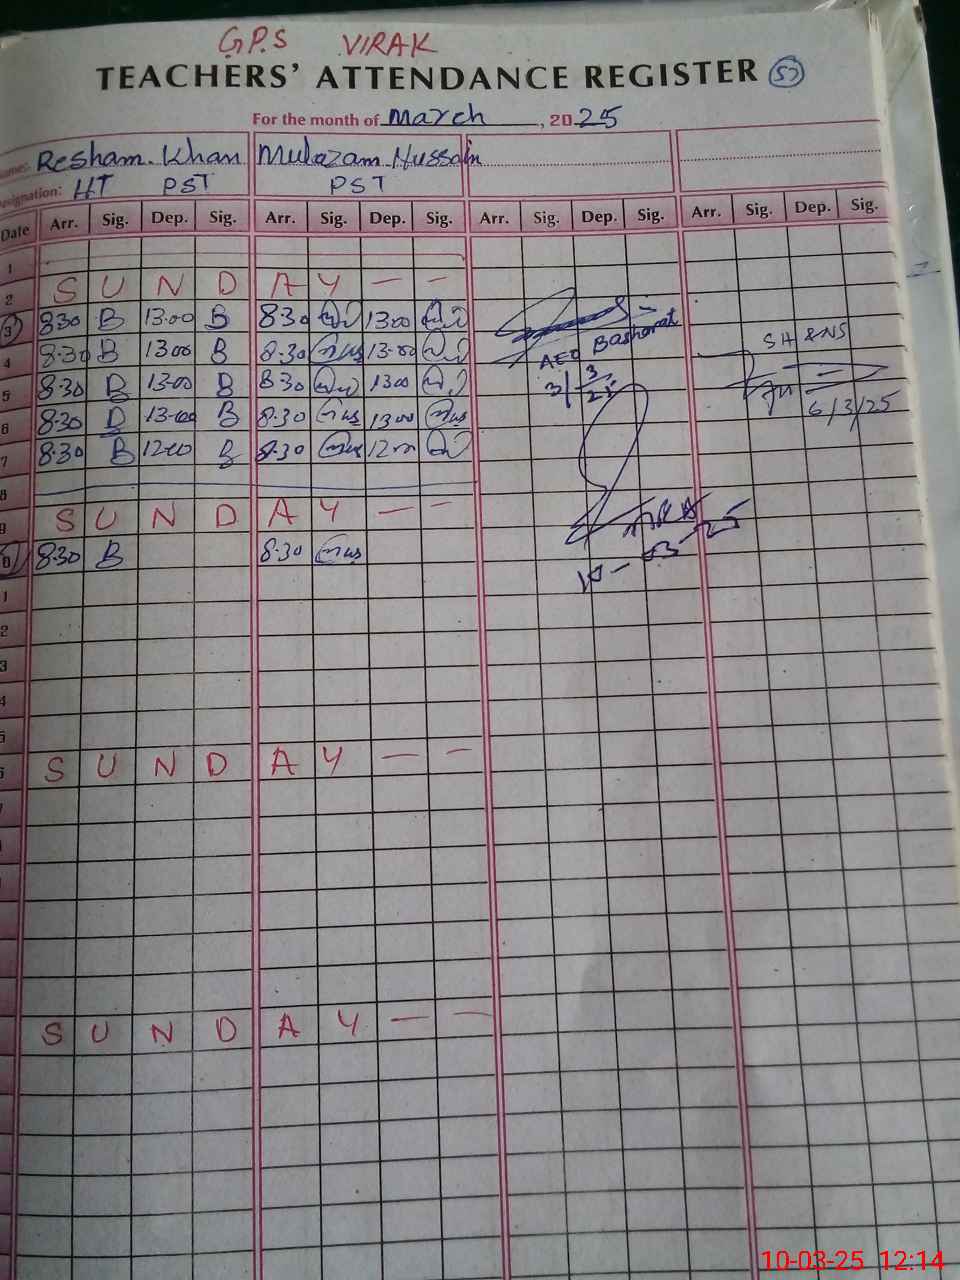 G.P.S VIRAK
TEACHERS' ATTENDANCE REGISTER 57
For the month of March, 2025
Name: Resham Khan Mulazam Hussain
Designation: HT PST PST
Date Arr. Sig. Dep. Sig. Arr. Sig. Dep. Sig. Arr. Sig. Dep. Sig. Arr. Sig. Dep. Sig.
1
2 S U N D A Y — —
3 8:30 B 13:00 B 8:30 13:00
4 8:30 B 13:00 B 8:30 13:00
5 8:30 B 13:00 B 8:30 13:00
6 8:30 B 13:00 B 8:30 13:00
7 8:30 B 12:00 B 8:30 12:00
8
9 S U N D A Y — —
10 8:30 B 8:30
AEO Basharat
3/3/25
SH & NS
6/3/25
10-03-25
1
2
3
4
5
6 S U N D A Y — —
7
S U N D A Y — —
10-03-25 12:14